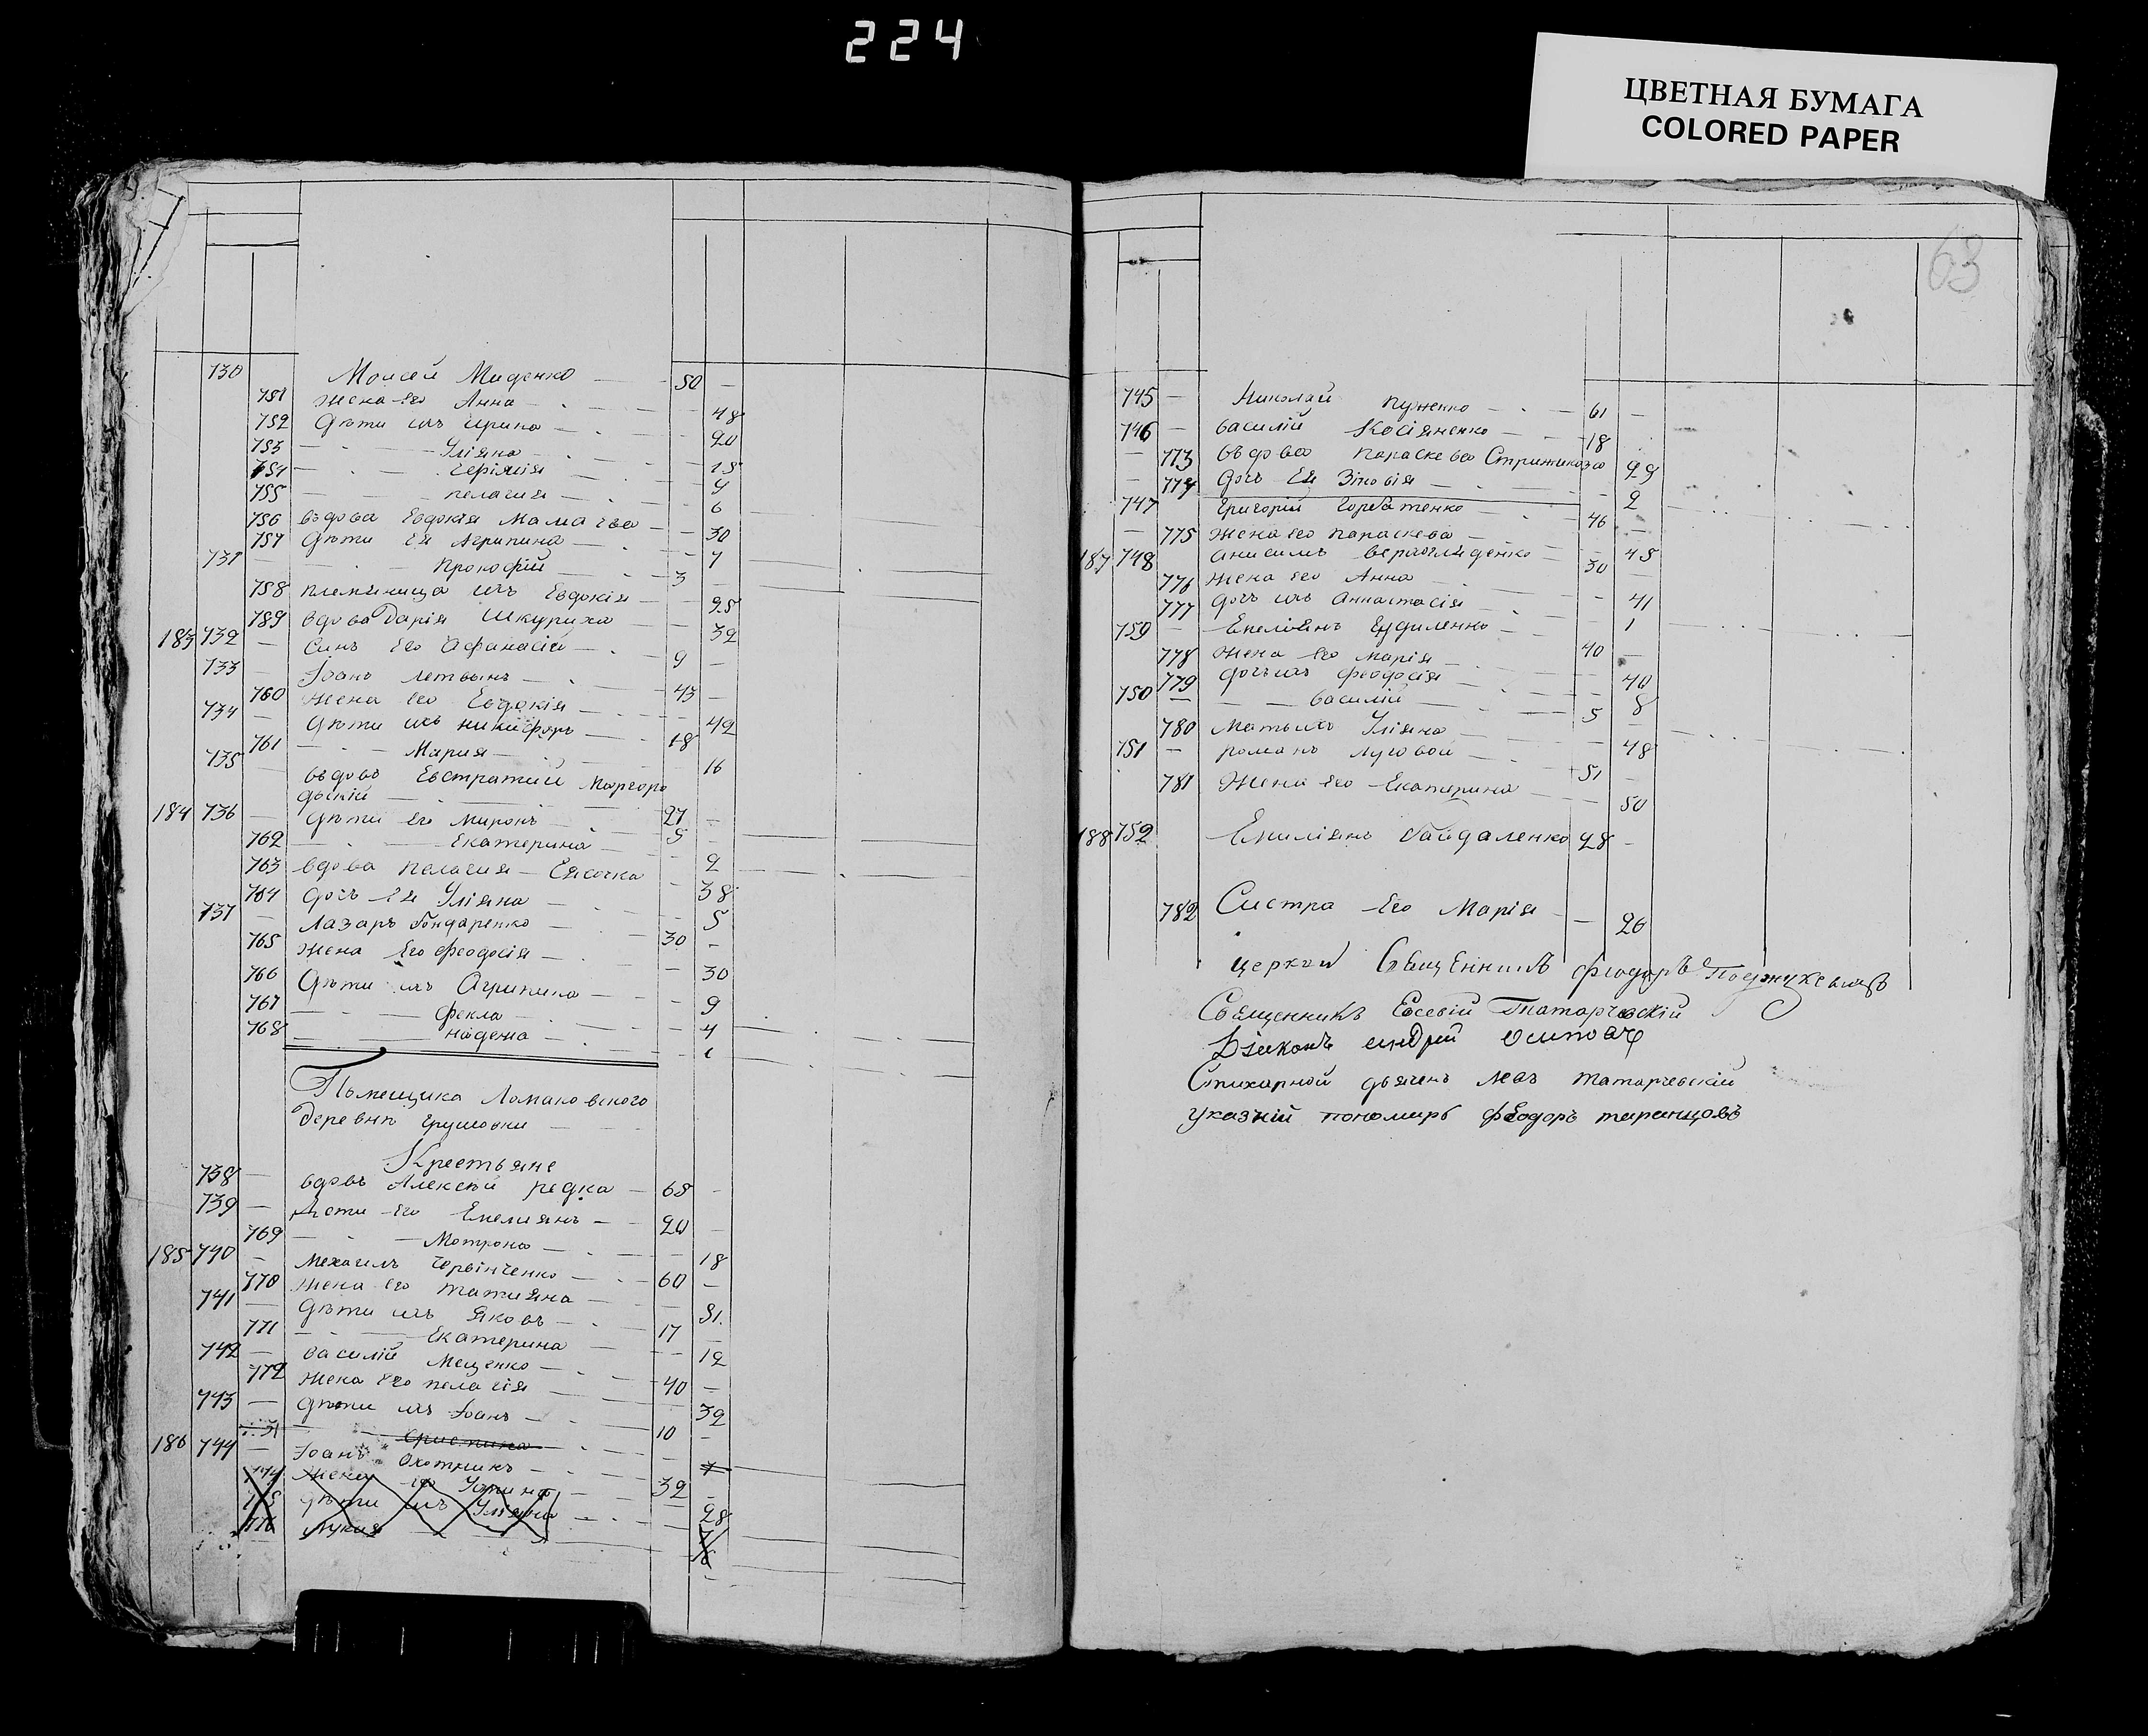 224
ЦВЕТНАЯ БУМАГА
COLORED PAPER
63
730 Моисей Миденко 50 —
751 жена его Анна — 48
752 дѣти ихъ Ирина — 20
753 — Уліяна — 15
754 — 9
755 — пелагия — 6
756 вдова Евдокія — 30
757 дѣти Ея Агрипина — 7
731 — Прокофій — 3
758 племяница ихъ Евдокія — 25
759 вдова Дарія Шкуриха — 32
183 732 — Синъ его Афанасій — 9 —
733 — Іоанъ Летвинъ — 43 —
760 жена его Евдокія — 42
734 — дѣти ихъ никифоръ — 18
761 — Мария — 16
735 вдовъ Евстратий Миргоро
дскій — 27 —
184 736 — дѣти его Миронъ — 5
762 — Екатерина — 2
763 вдова пелагия — 38
764 дочь Ея Уліяна — 5
737 — Лазаръ Бондаренко — 30 —
765 жена Его феодосія — 30
766 дѣти ихъ Агрипина — 9
767 — фекла — 4
768 — 1
Помещика Ломаковского
деревни Грушовки
Крестьяне
738 — вдовъ Алексѣй редка — 65 —
739 — дѣти его Емелиянъ — 20 —
769 — Мотрона — 18
185 740 — Михаилъ Червінченко — 60 —
770 жена его татияна — 51
741 — дѣти ихъ яковъ — 17
771 — Екатерина — 12
742 — василій Мещенко — 40 —
772 жена его пелагія — 32
743 — дѣти ихъ Іоанъ — 10 —
Христина
186 744 — Іоанъ Охотникъ — 32 —
774 жена его — 28
775 дѣти ихъ Уліяна
776 Лукия
745 — Николай пуженко — 61 —
746 — василій Косіяненко — 18
773 вдова параскева Стрижикова 29
774 дочь Ея Зіновія — 2
747 Григорій Горбатенко — 46 —
775 жена его параскева — 45
187 748 анисимъ — 30 —
776 жена его Анна — 41
777 дочь ихъ Аннастасія — 1
759 — Емеліянъ — 40 —
778 жена его марія — 40
779 дочь ихъ феодосія — 8
750 — василій — 5 —
780 мать ихъ Уліяна — 48
751 — романъ луговой — 51 —
781 жена его Екатерина — 50
188 752 Емиліянъ Гайдаленко 28 —
782 Систра его Марія — 26
церкви Священникъ феодоръ
Священникъ Евсевій Татарчевскій
Діяконъ андрій Осиповъ
Стихарной дьячекъ Левъ татарчевскій
указній пономарь феодоръ таранцовъ